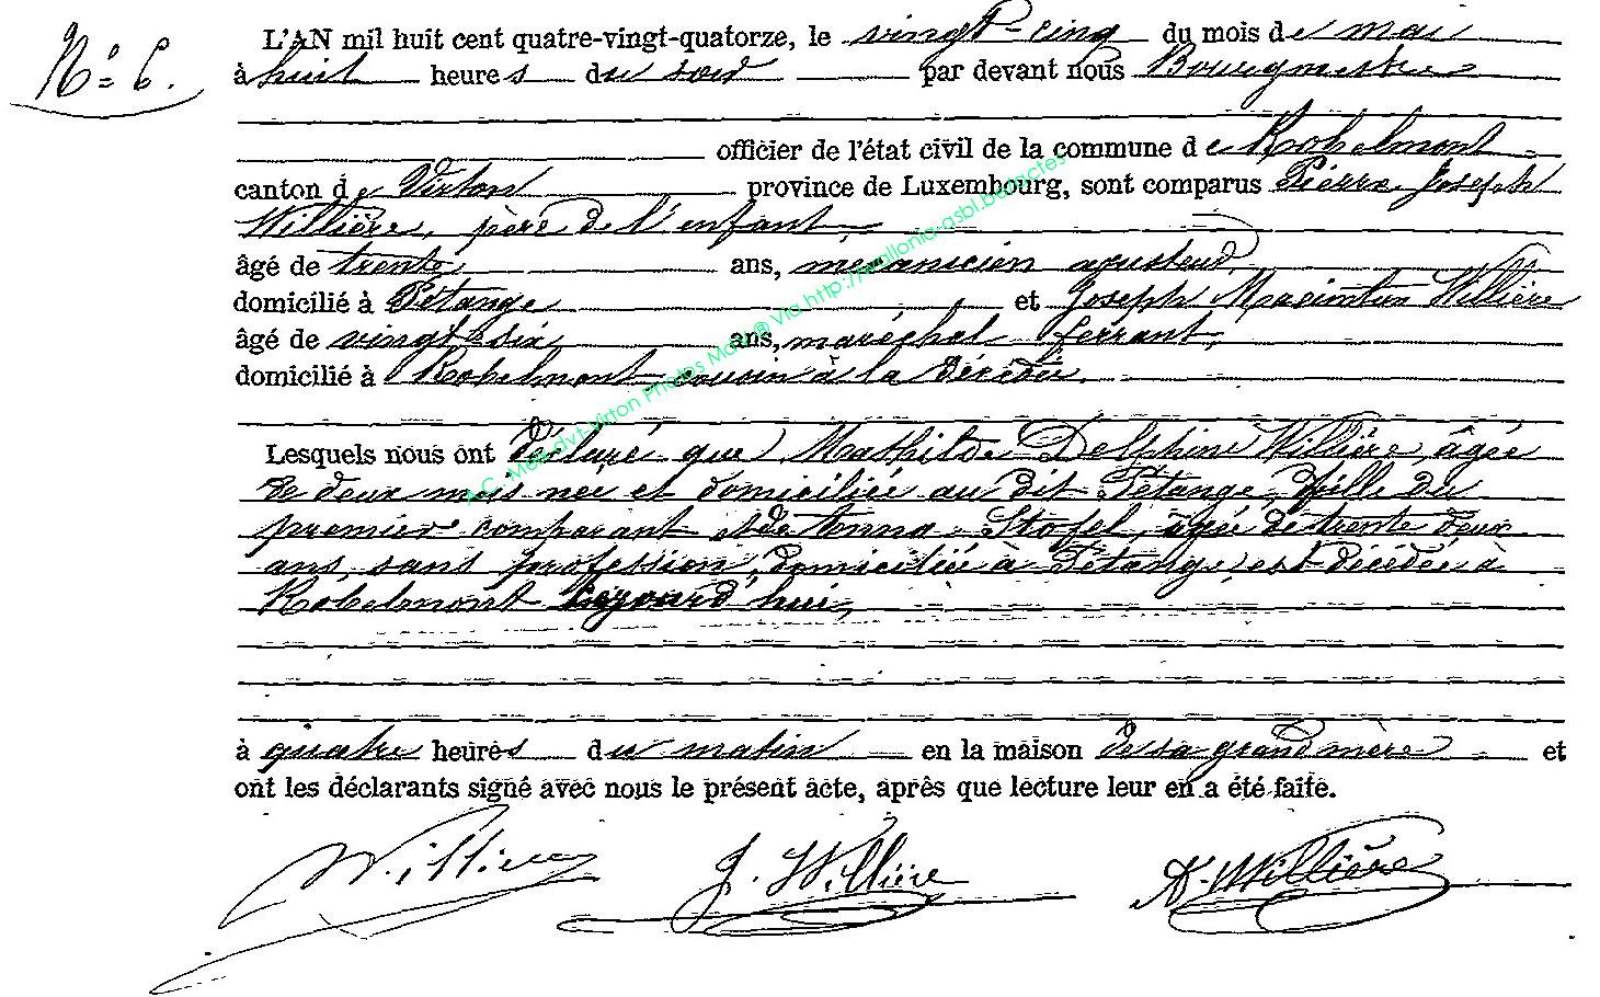 N° 6.
L'AN mil huit cent quatre-vingt-quatorze, le vingt-cinq du mois de mai
à huit heures du soir par devant nous Bourgmestre
officier de l'état civil de la commune de Robelmont
canton de Virton province de Luxembourg, sont comparus Pierre Joseph
Willière, père de l'enfant,
âgé de trente ans, mécanicien ajusteur,
domicilié à Pétange et Joseph Maximin Willière
âgé de vingt six ans, maréchal ferrant,
domicilié à Robelmont cousin à la décédée.
Lesquels nous ont déclaré que Mathilde Delphine Willière, âgée
de deux mois née et domiciliée au dit Pétange, fille du
premier comparant et de Anna Stofel, agée de trente deux
ans, sans profession, domiciliée à Pétange, est décédée à
Robelmont aujourd'hui,
à quatre heures du matin en la maison de sa grand mère et
ont les déclarants signé avec nous le présent acte, après que lecture leur en a été faite.
Willière J. Willière A. Willière
A.C. Mois dvt-Virton Photos Mois ® Via http://wallonia-asbl.be/actes